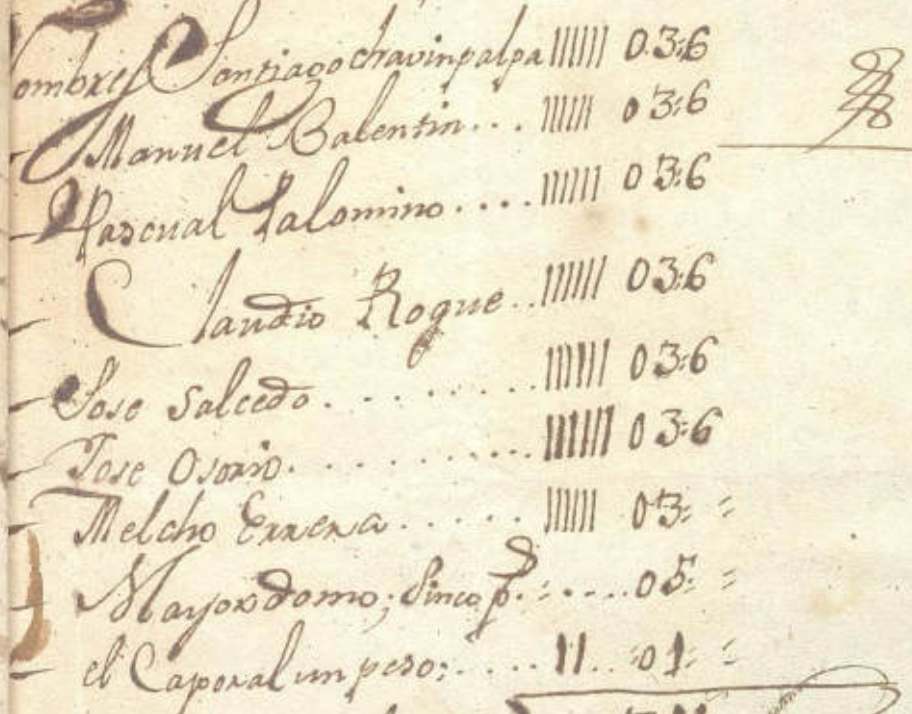 ombres Santiago chavinpalpa |||||| 03:6
Manuel Balentin... |||||| 03:6
Pascual Palomino..... |||||| 03:6
Claudio Roque.. |||||| 03:6
Jose Salcedo......... |||||| 03:6
Jose Osorio.......... ||||||| 03:6
Melcho Errera..... |||||| 03: =
Mayordomo; Sinco p.s..... 05: =
el Caporal un peso;.... 11.. 01: =